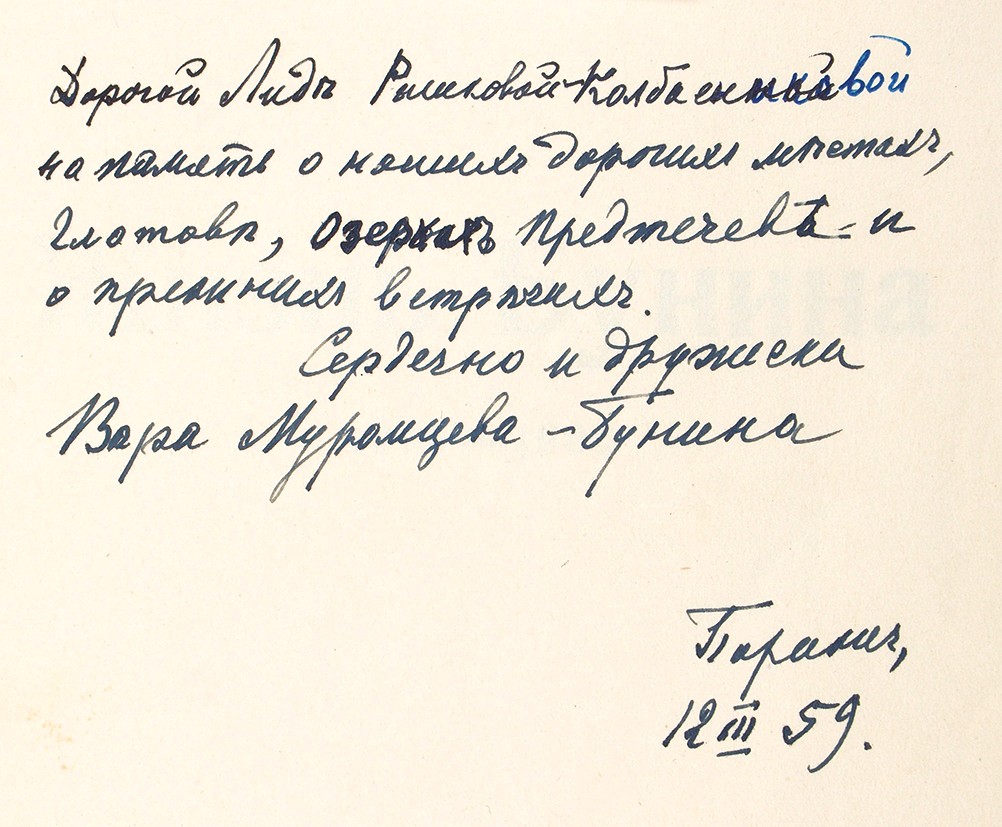 Дорогой Лидѣ Рышковой-Колбасниковой
на память о нашихъ дорогихъ мѣстахъ,
Глотовѣ, Озеркахъ Предтечевѣ и
о прежнихъ встрѣчахъ.
Сердечно и дружески
Вера Муромцева-Бунина
Парижъ,
12 III 59.